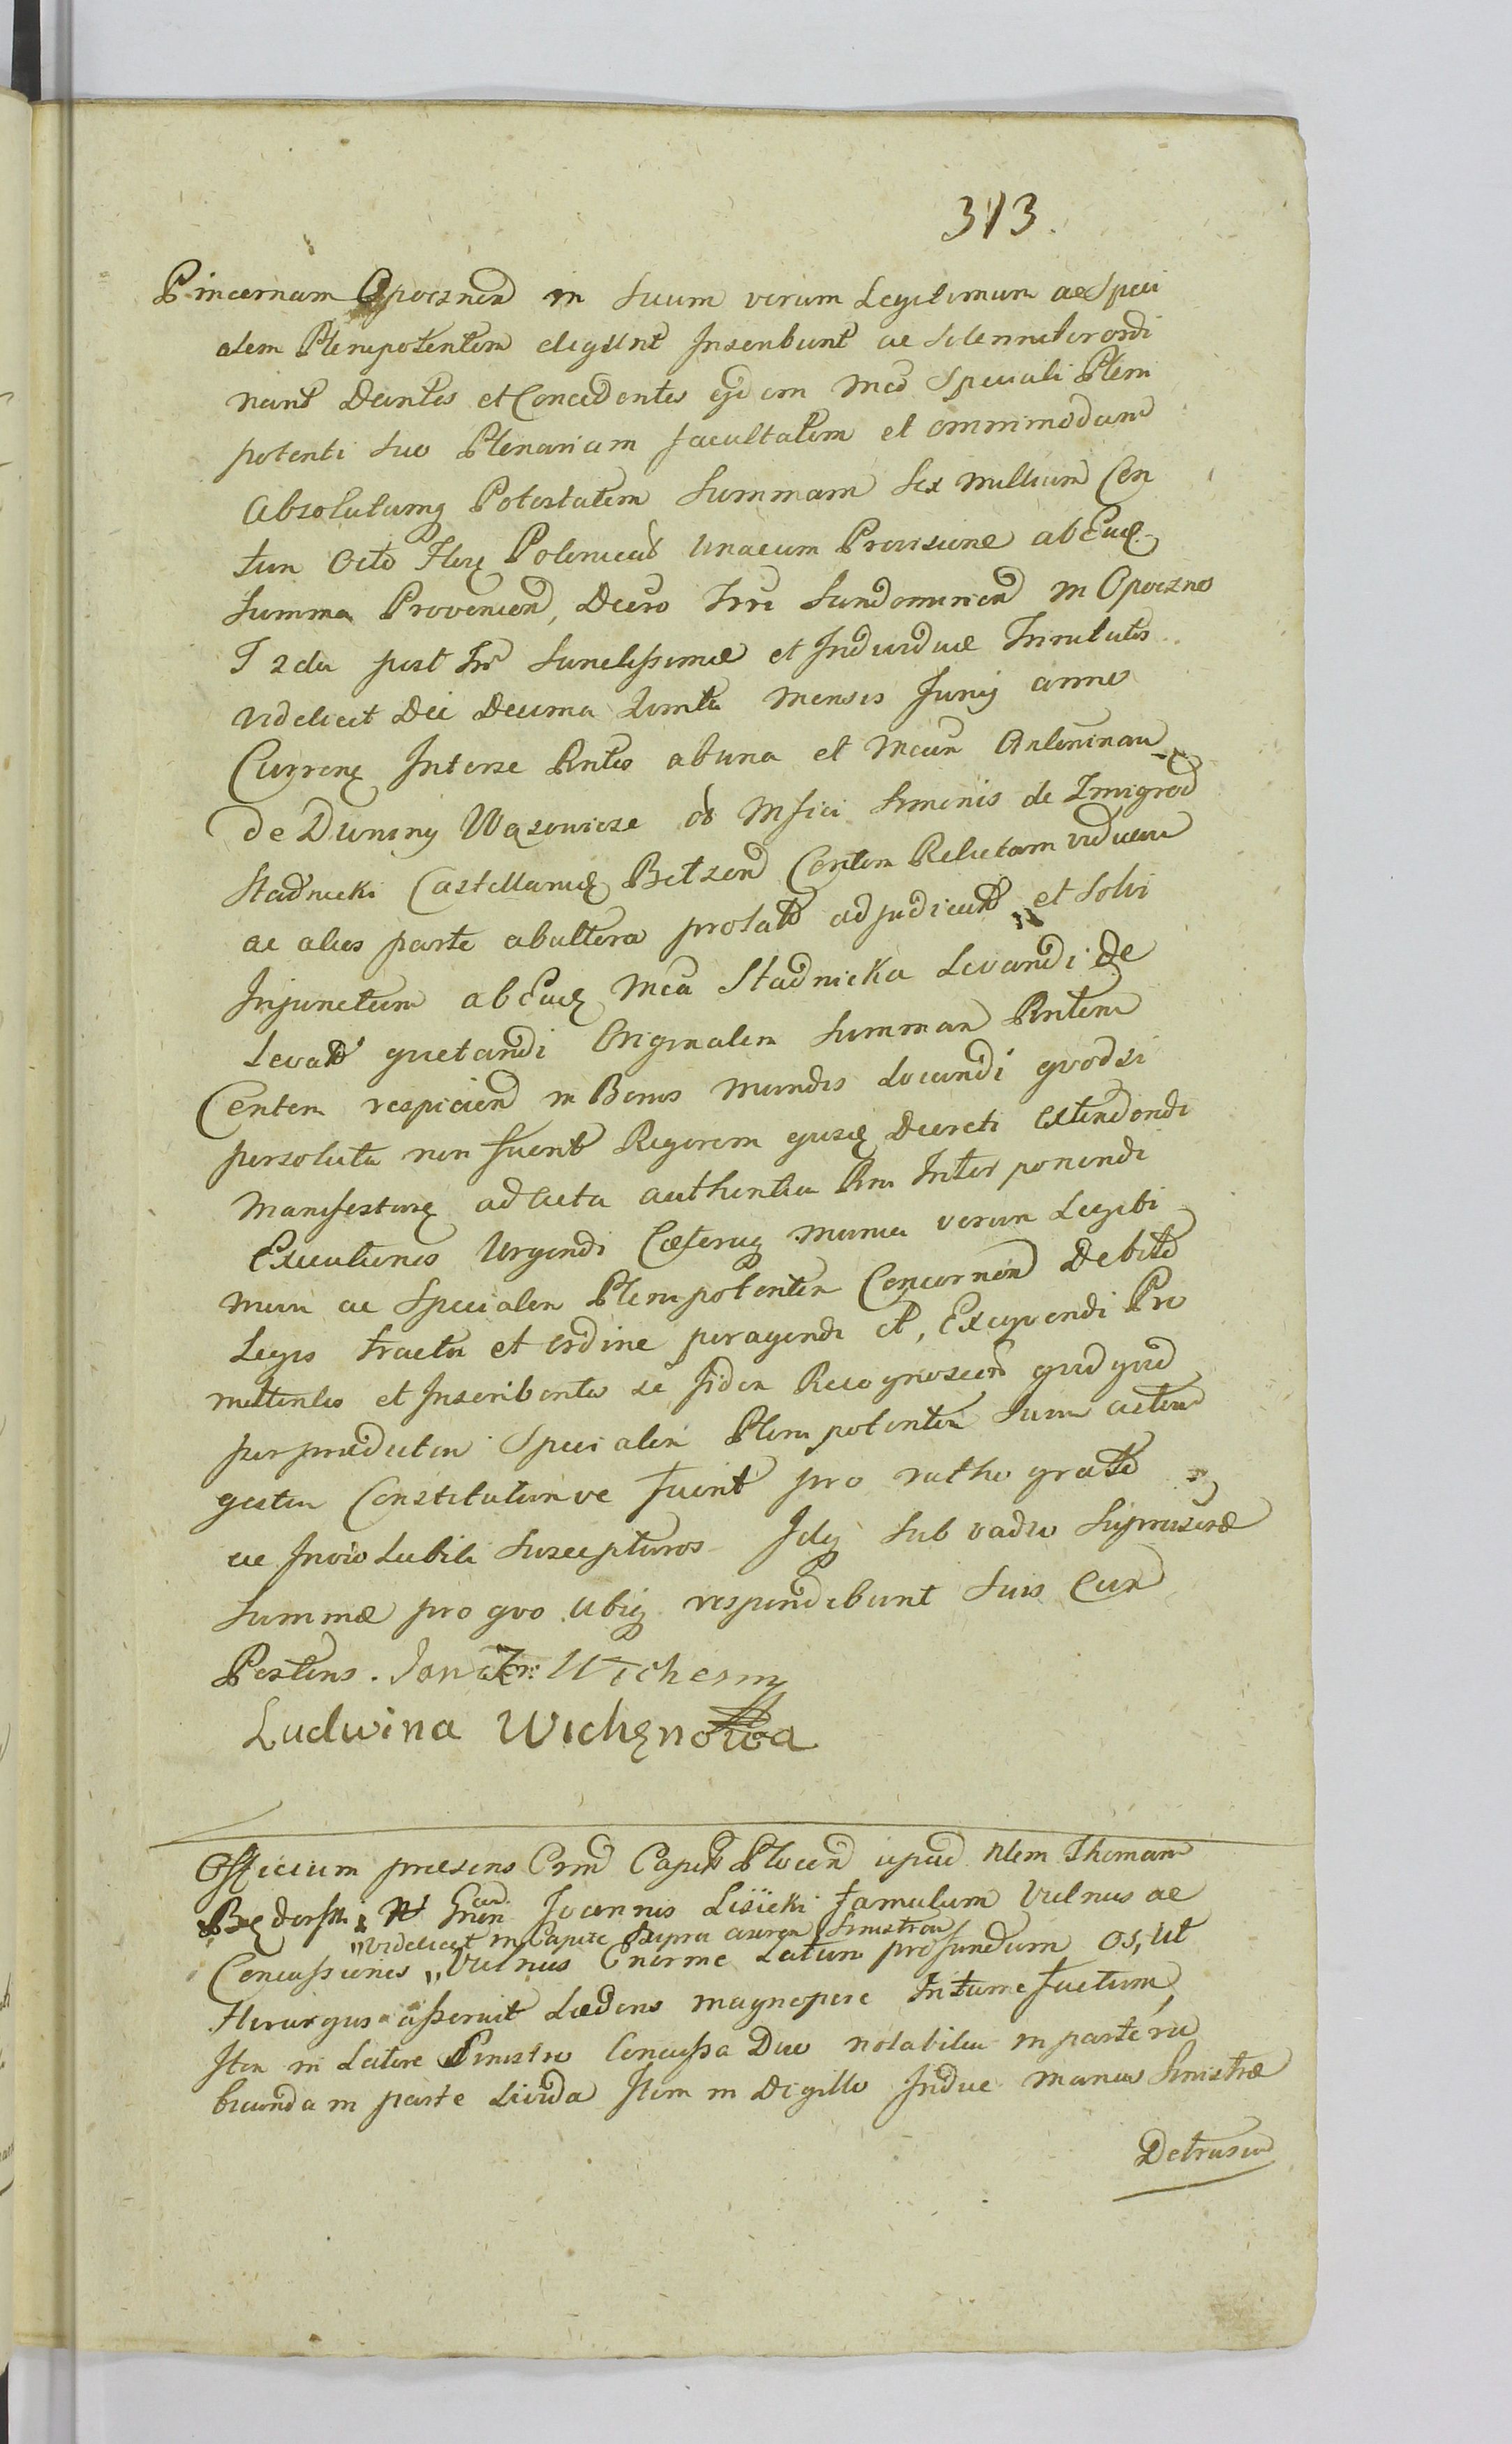 313.
Pincernam Opocznen in Suum verum Legitimum ac Speci
alem Plenipotentem eligunt Inscribunt ac Solenniter ordi
nant Dantes et Concedentes ejdem Mco Speciali Pleni
potenti suo Plenariam facultatem et omnimodam
Absolutamq Potestatem Summam Sex millium Cen
tum Octo Flor Polonical unacum Provisione ab Eadq
Summa Provenien, Decro Trri Sandomirien in Opoczno
F 2da post Fm Sanctissimae et Individuae Trinitatis
videlicet Die Decima Quinta mensis Junij anno
Curren Interse Rntes ab una et Mcam Antoninam
de Duniny Wąsowicze Mfici Simonis de Zmigrod
Stadnicki Castellanid Betzen Contem Relictam viduam
ac alios parte ab altera prolato adjudicato et Solvi
Injunctum ab Eadq Mca Stadnicka Levandi de
Levato quietandi Originalem Summam Rntem
Contem respicien in Bonis Mundis Locandi quodsi
persoluta non fuerit Rigorem ejusq Decreti extendendi
Manifestumq ad Acta authentica Rni Interponendi
Executiones Urgendi Caeteraq munia verum Legiti
mum ac Specialem Plenipotentem Concernen Debito
Legis tractu et ordine peragendi et, Exequendi Pro
mittentes et Inscribentes se fidem Recognoscen quidquid
per praedictum Specialem Plenipotentem Suum actum
gestum Constitutumve fuerit pro ratho grato
ac Inviolabili Suscepturos Idq sub vadio Suprascrae
Summae pro quo ubiq respondebunt Suis Cum
Postens. Jan Wichern
Ludwina Wichęnowa
Officium praesens Crmd Capit Plocen apud Nlem Thomam
Joannis Lisicki famulum Vulnus ac
"videlicet in Capite Supra aurem Sinistram
Concussiones " Vulnus Enorme Latum profundum os, ut
Hirurgus asseruit Ladens magnopere Intumefactum,
Item in Latere Sinistro Concussa Duo notabilia in parte ru
bicunda in parte Livida Item in Digitto Indice manus Sinistrae
Detrusum